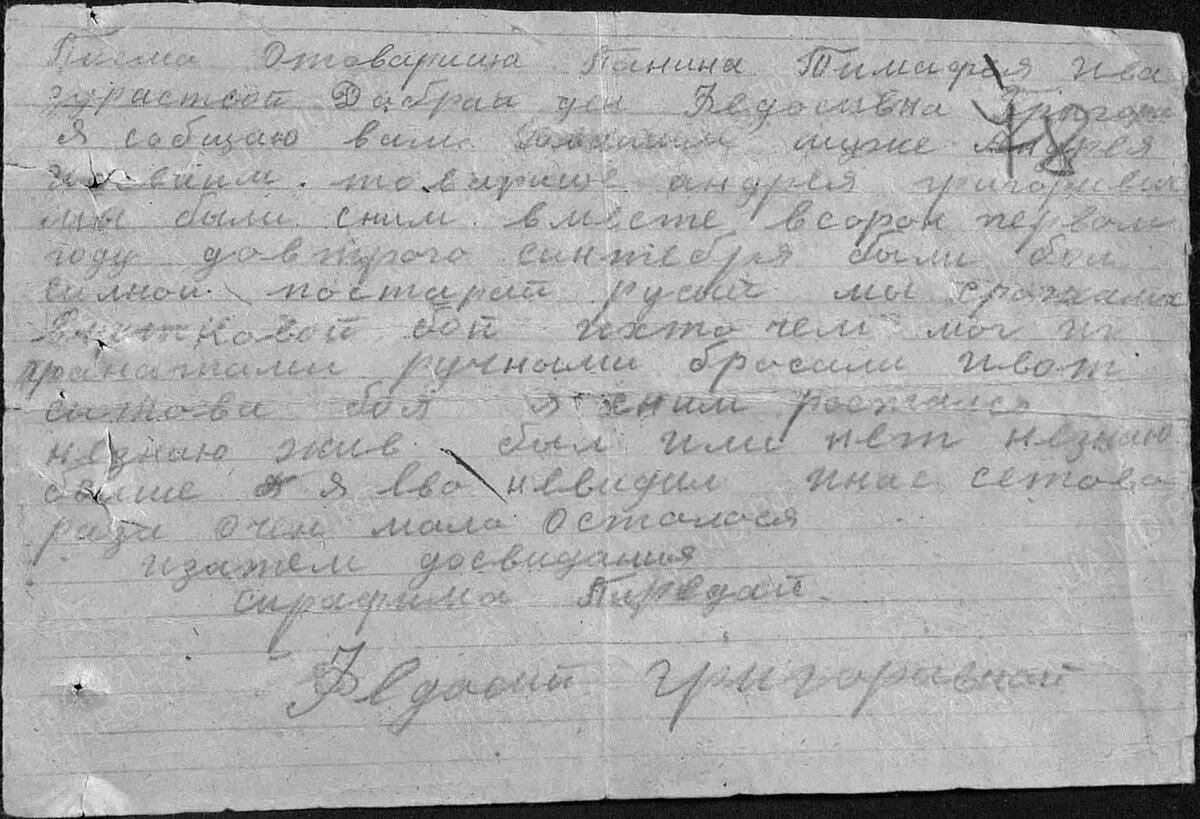 Писма Отоварища Панина Тимафея ива
здраствой Добрай ден Евдосивна Григори
78
Я собщаю вам муже Андрея
товарише андрея григоривич
мы были сним вместе всорок первом
году довтрого синтебря были бои
силнои постарай русый мы сражались
бой ихто чем мог и
гранатами ручными бросали ивот
ситова боя я снимростался
незнаю жив был или нет незнаю
болше я ево невидил инас сетова
раза очен мало Осталося
изатем досвидания
сирафима Пиредай
Евдосий григоривной